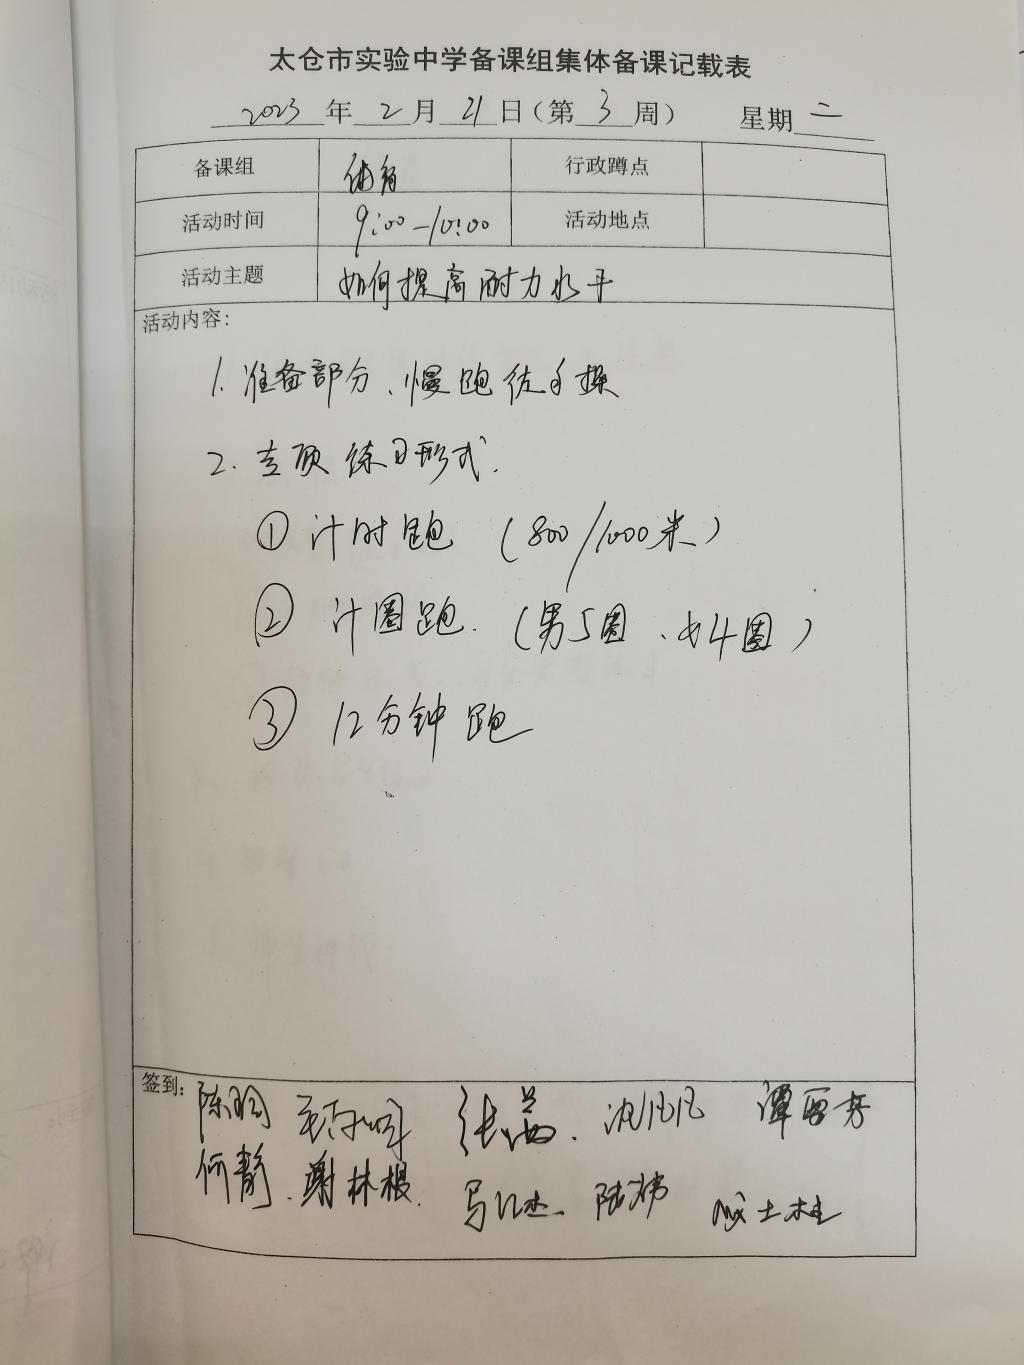 太仓市实验中学备课组集体备课记载表
2023年2月21日(第3周) 星期二
备课组 体育 行政蹲点
活动时间 9:00-10:00 活动地点
活动主题 如何提高耐力水平
活动内容:
1. 准备部分、慢跑 徒手操
2. 专项练习形式.
① 计时跑 (800/1000米)
② 计圈跑. (男5圈、女4圈)
③ 12分钟跑
签到:
陈 张 沈凡凡 谭
何静. 谢林根. 马 陆 士